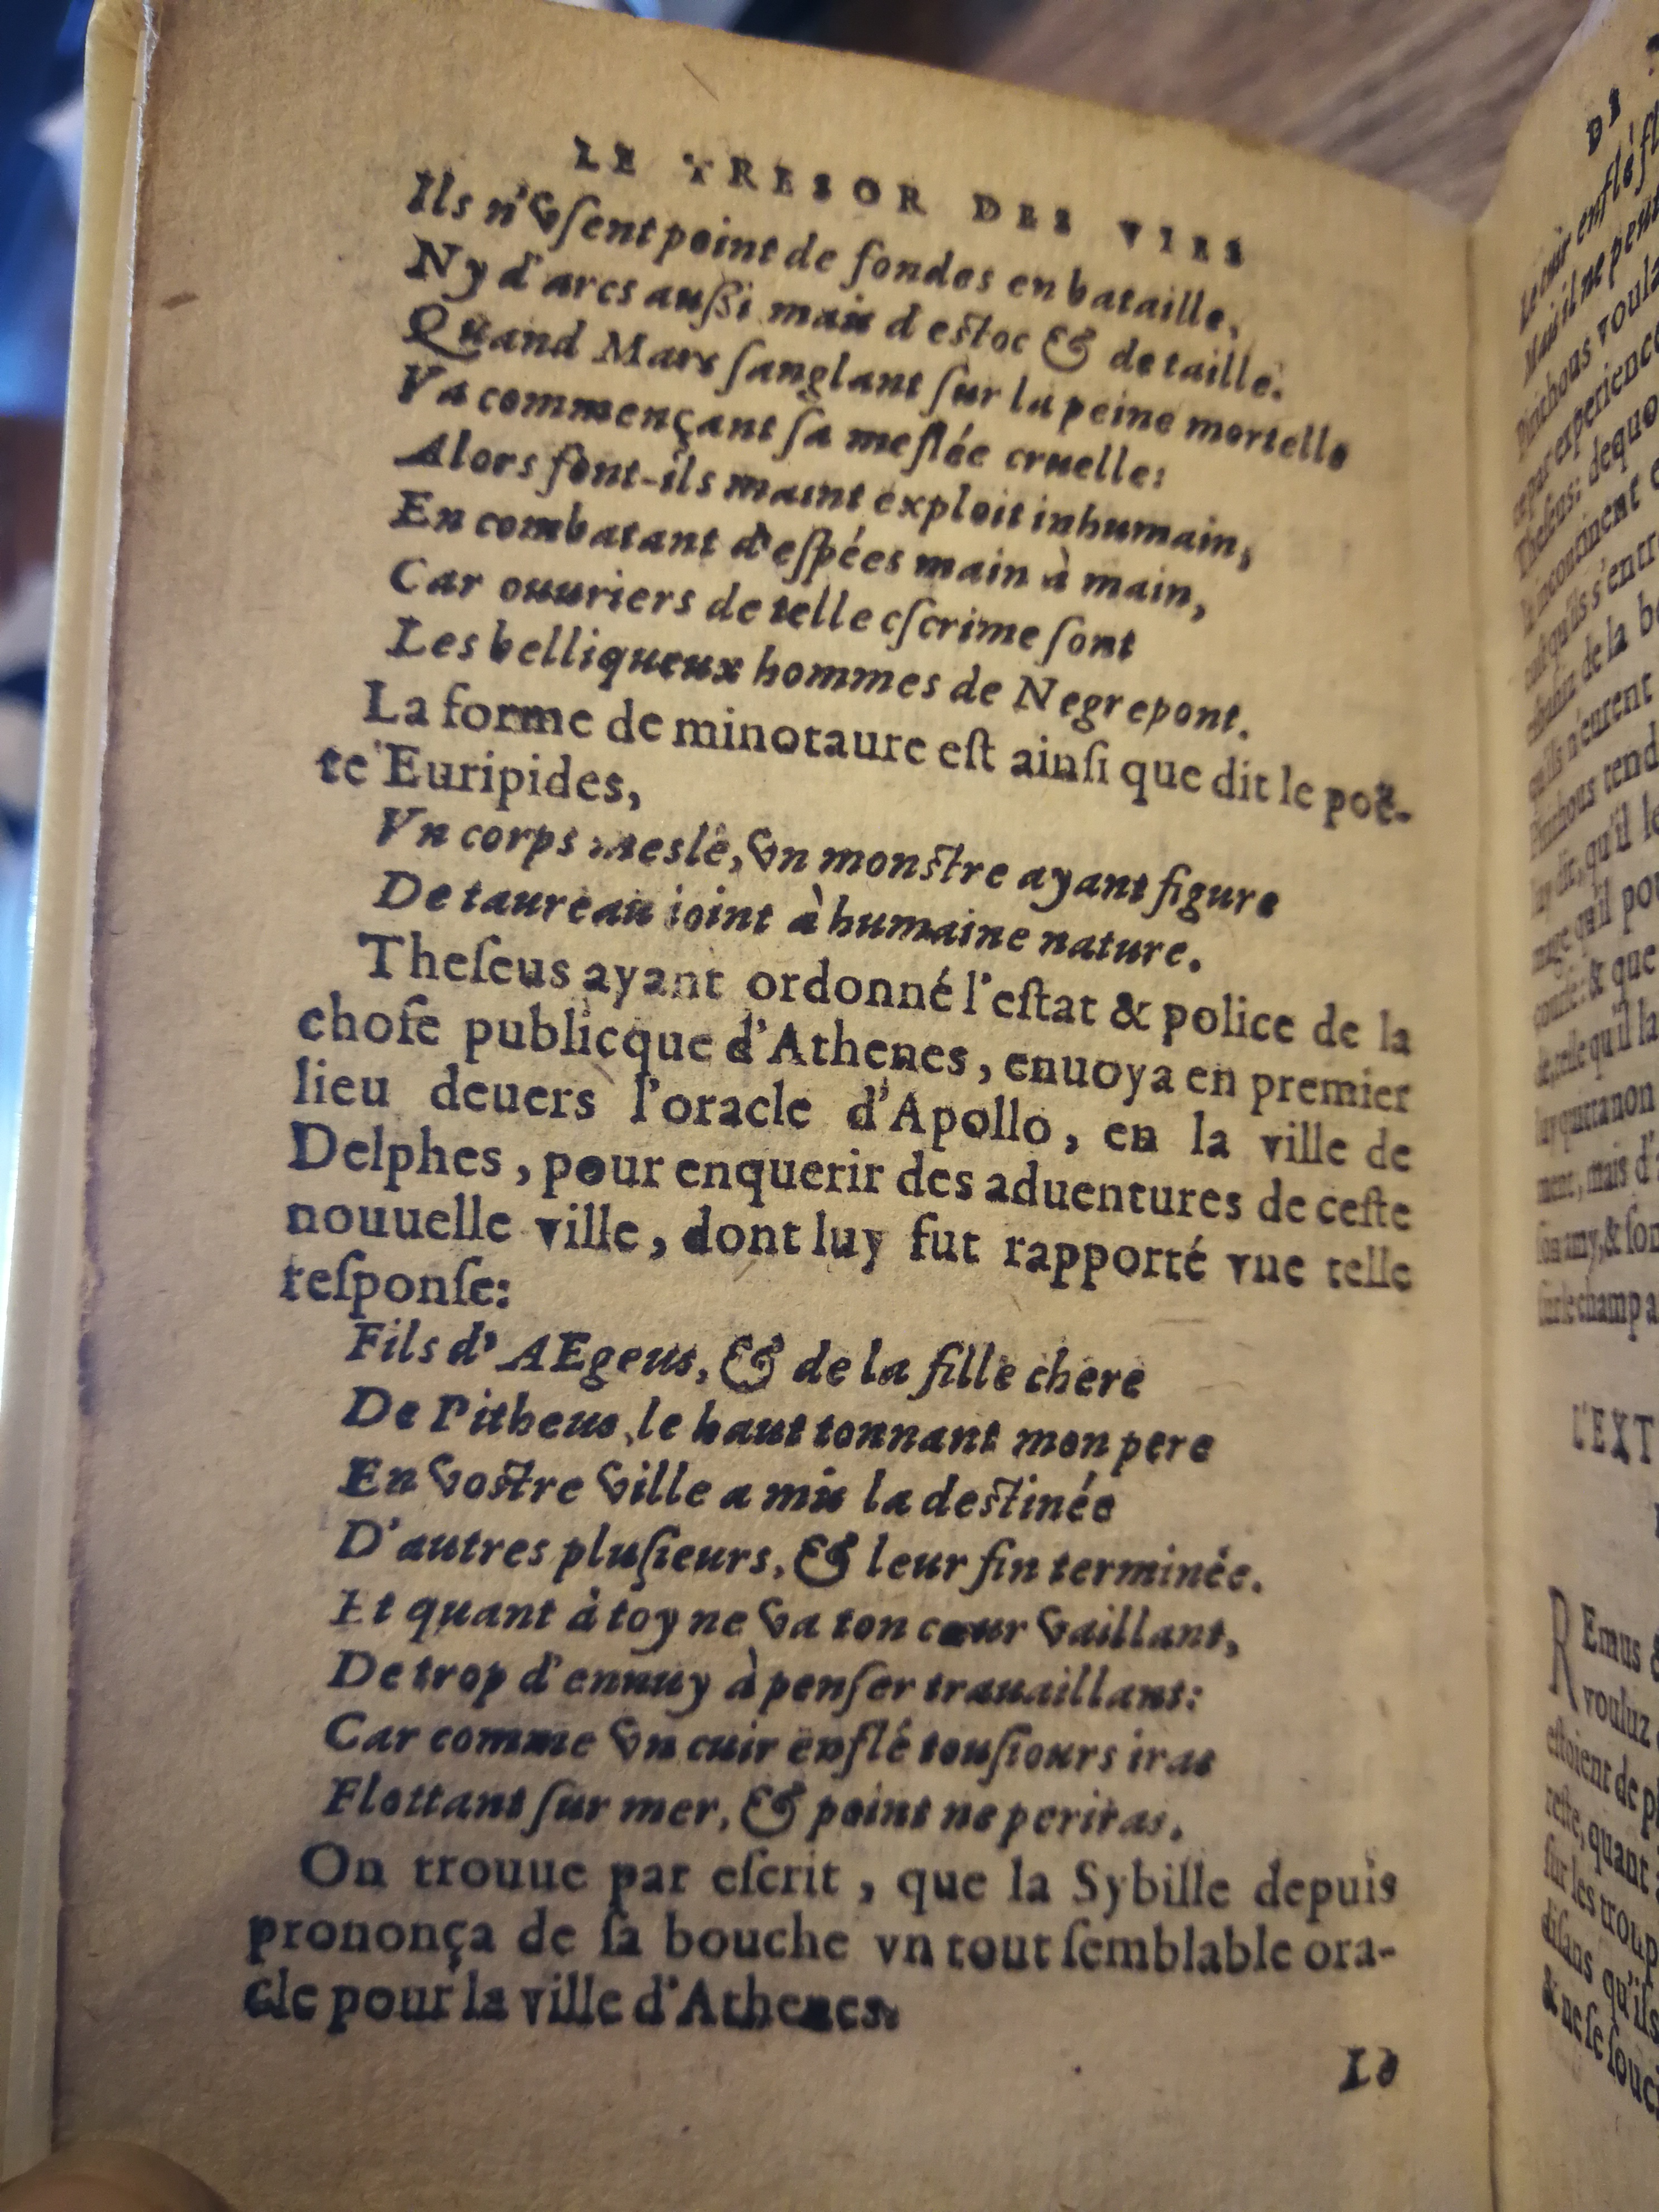 LE TRESOR DES VIES
Ils n'vſent point de fondes en bataille,
Ny d'arcs auſſi mais d'estoc & de taille.
Quand Mars ſanglant ſur la peine mortelle
Va commençant ſa meſlée cruelle:
Alors font-ils maint exploit inhumain,
En combatant d'eſpées main à main,
Car ouuriers de telle eſcrime ſont
Les belliqueux hommes de Negrepont.
La forme de minotaure eſt ainſi que dit le poë-
te Euripides,
Vn corps meslé, vn monstre ayant figure
De taureau ioint à humaine nature.
Theſeus ayant ordonné l'eſtat & police de la
choſe publicque d'Athenes, enuoya en premier
lieu deuers l'oracle d'Apollo, en la ville de
Delphes, pour enquerir des aduentures de ceſte
nouuelle ville, dont luy fut rapporté vne telle
reſponſe:
Fils d'AEgeus, & de la fille chere
De Pitheus, le haut tonnant mon pere
En vostre ville a mis la destinée
D'autres pluſieurs, & leur fin terminée.
Et quant à toy ne va ton cœur vaillant,
De trop d'ennuy à penſer trauaillant:
Car comme vn cuir enflé touſiours iras
Flottant ſur mer, & point ne periras.
On trouue par eſcrit, que la Sybille depuis
prononça de ſa bouche vn tout ſemblable ora-
cle pour la ville d'Athenes.
Le
DE
Le cuir enflé
Mais il ne peut
Pirithous
experience
Theſeus: dequo
incontinent
qu'ils s'entr
de la
n'eurent
Pirithous tend
dit, qu'il
qu'il
& que
telle qu'il la
ment, mais d'
ſon amy, & ſon
ſur le champ a
L'EXT
REmus &
vouluz
eſtoient de
reſte, quant
ſur les troup
diſans qu'ils
& ne ſe ſouci